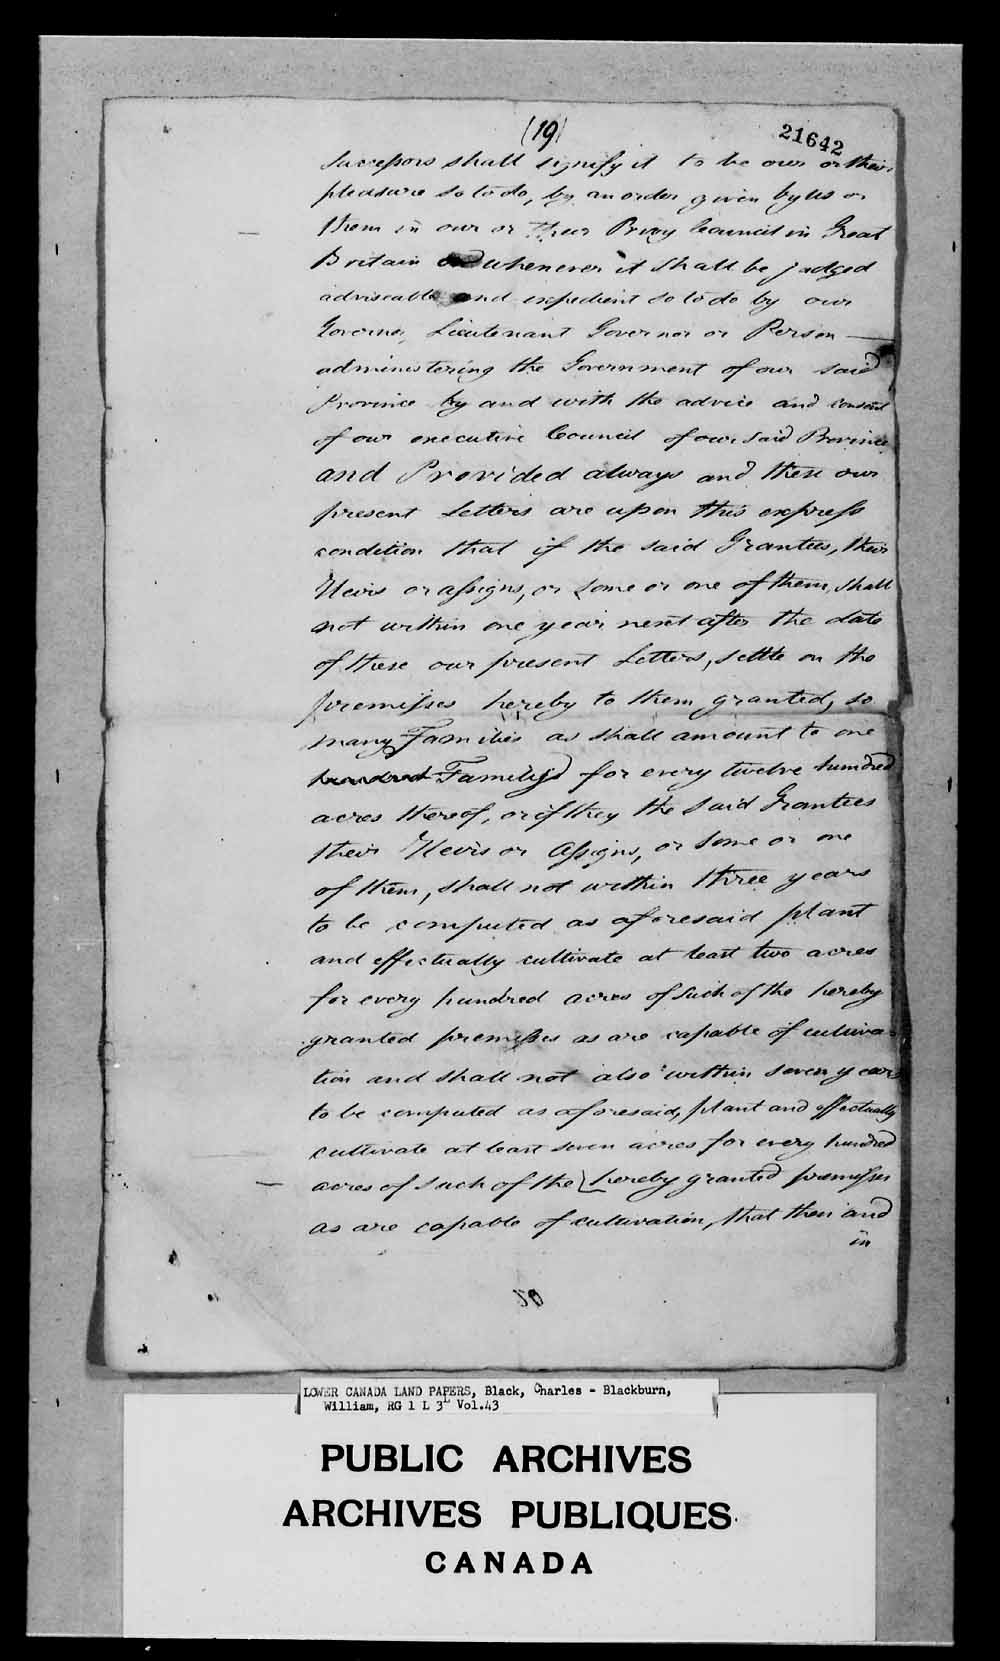 (19)
21642
Successors shall signify it to be our or their
pleasure so to do, by an order given by us or
them in our or their Privy Council in Great
Britain or whenever it shall be judged
adviseable and expedient so to do by our
Governor, Lieutenant Governor or Person
administering the Government of our said
Province by and with the advice and consent
of our executive Council of our said Province
and Provided always and these our
present Letters are upon this express
condition that if the said Grantees, their
Heirs or assigns, or some or one of them, shall
not within one year next after the date
of these our present Letters, settle on the
premisses hereby to them granted, so
many Families as shall amount to one
hundred Family for every twelve hundred
acres thereof, or if they the said Grantees
their Heirs or Assigns, or some or one
of them, shall not within three years
to be computed as aforesaid plant
and effectually cultivate at least two acres
for every hundred acres of such of the hereby
granted premisses as are capable of cultiva-
tion and shall not also within seven years
to be computed as aforesaid, plant and effectually
cultivate at least seven acres for every hundred
acres of such of the hereby granted premisses
as are capable of cultivation, that then and
in
LOWER CANADA LAND PAPERS, Black, Charles - Blackburn,
William, RG 1 L 3L Vol.43
PUBLIC ARCHIVES
ARCHIVES PUBLIQUES
CANADA